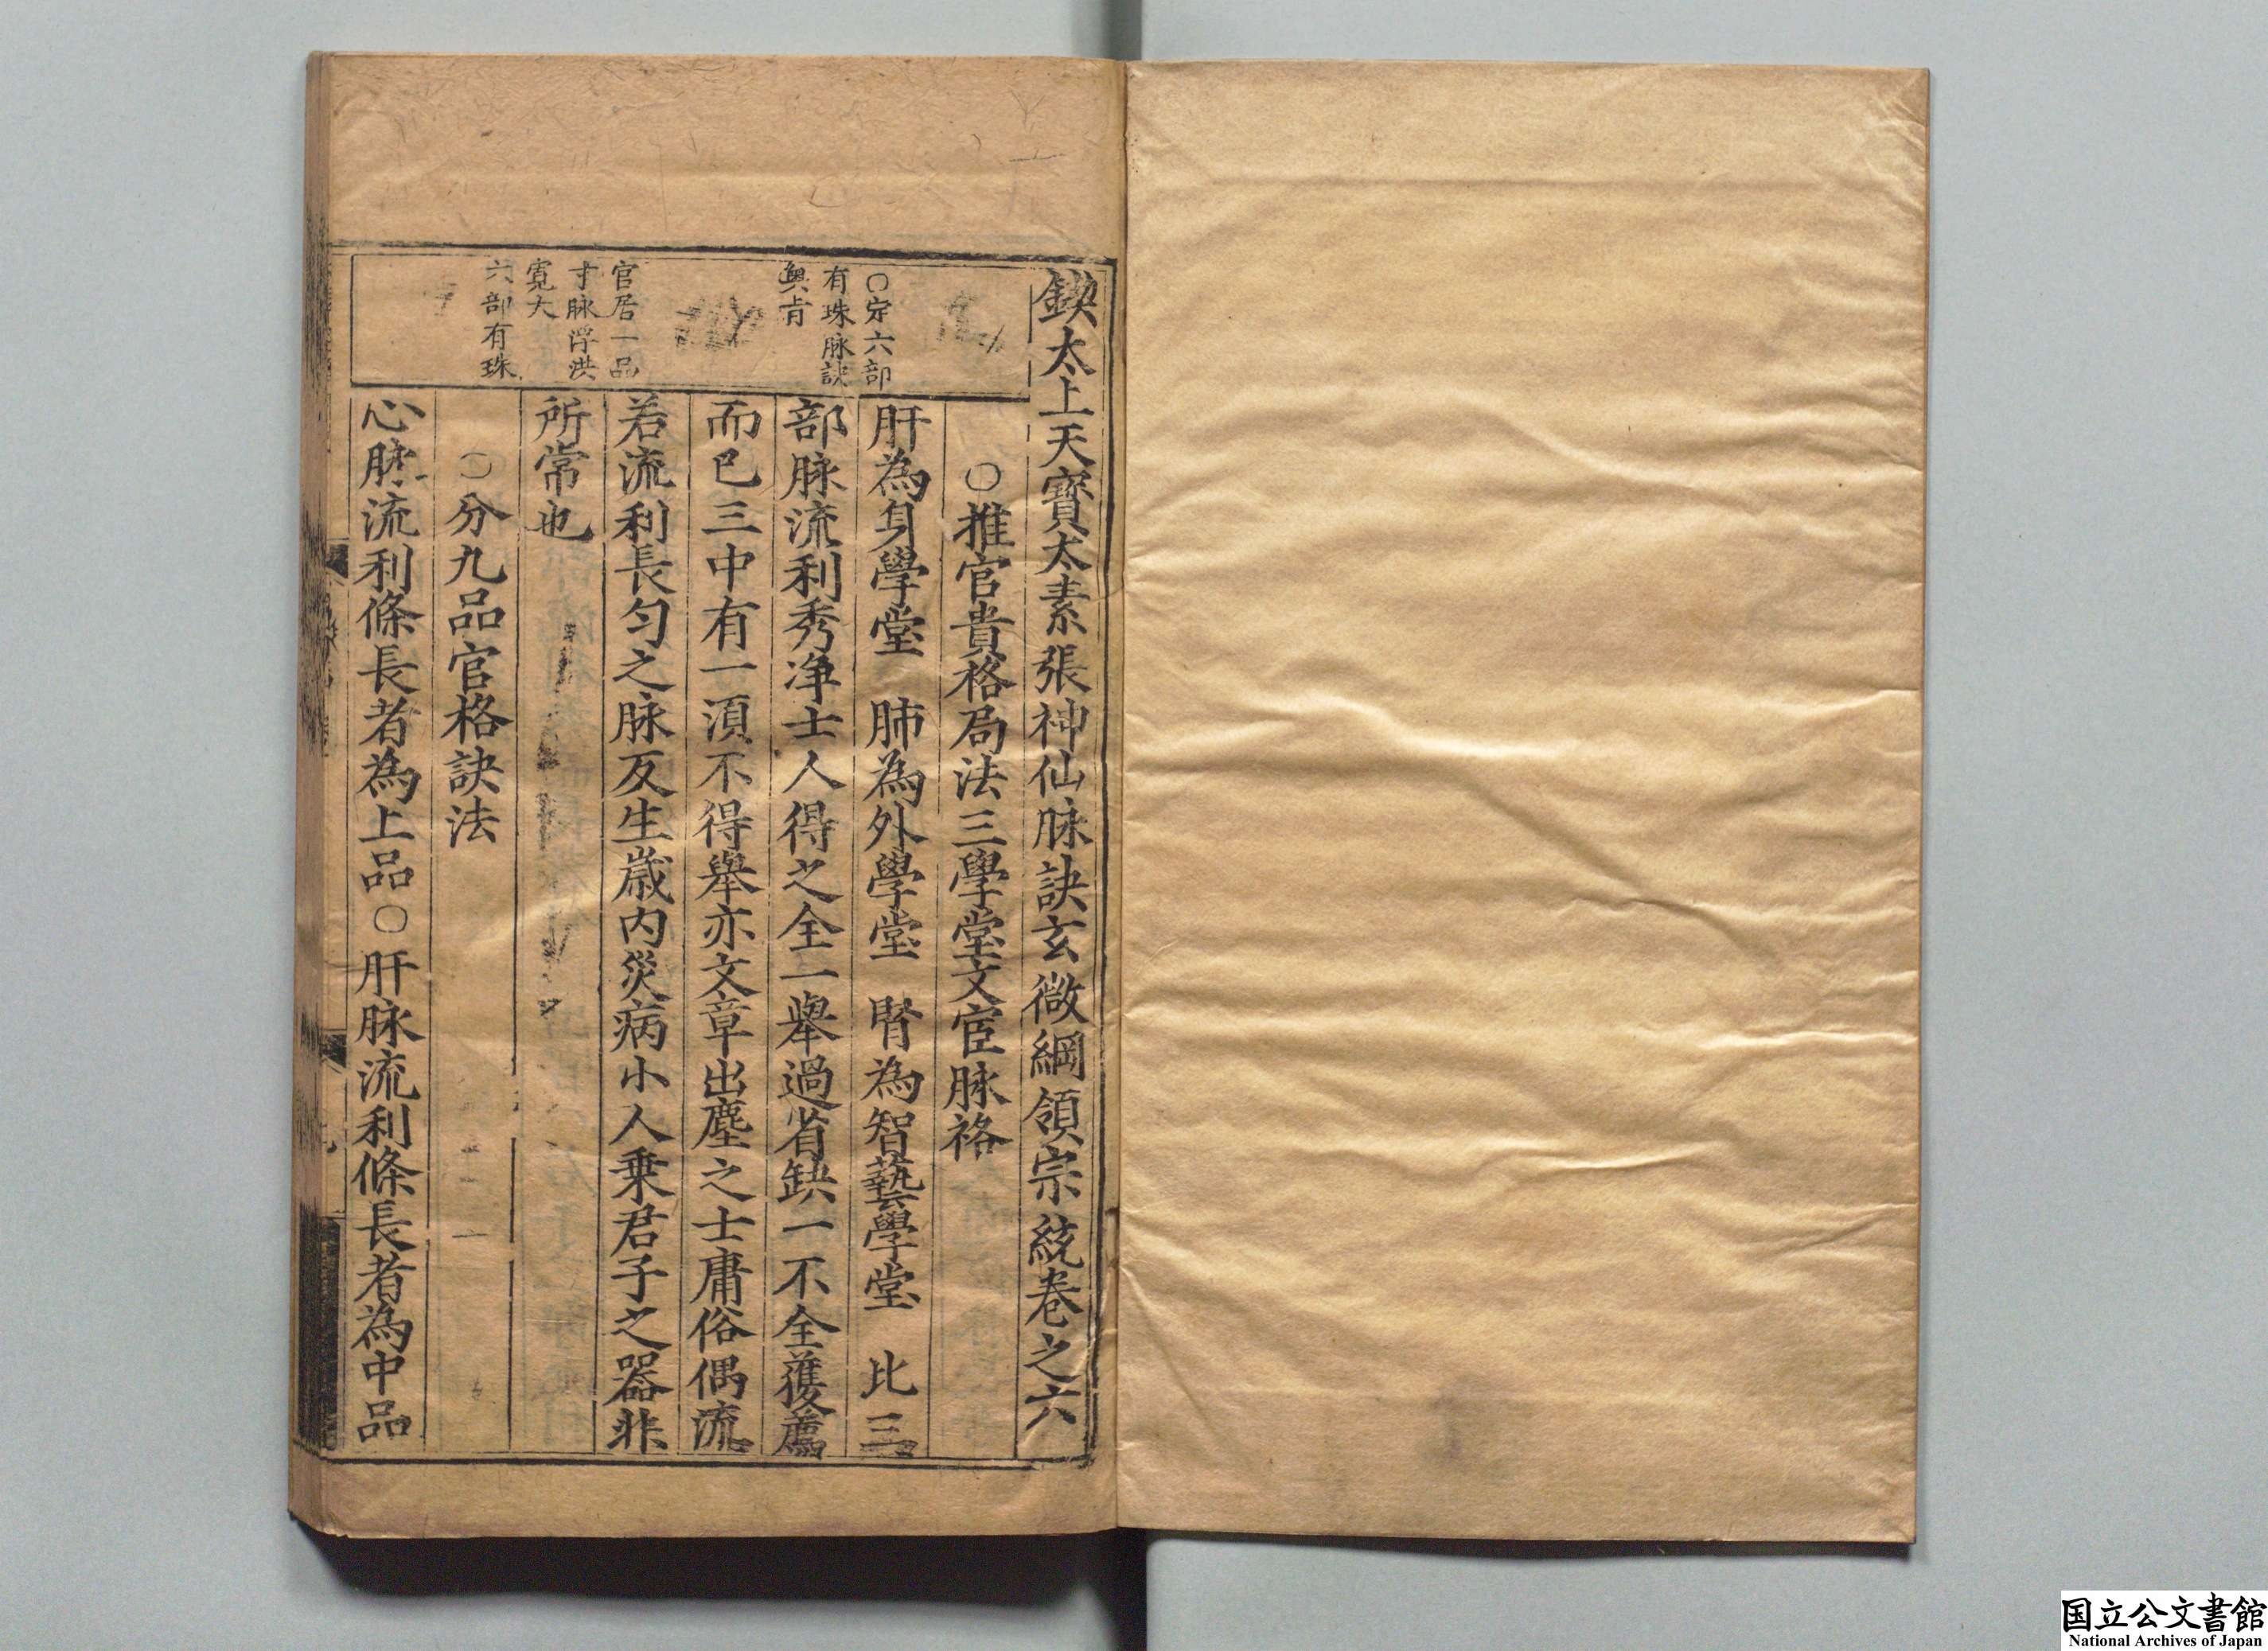 鍥太上天寶太素張神仙脉訣玄微綱領宗統卷之六
○推官貴格局法三學堂文宦脉格
肝為身學堂　肺為外學堂　腎為智藝學堂　比三
部脉流利秀净士人得之全一舉過省缺一不全獲薦
而已三中有一湏不得舉亦文章出塵之士庸俗偶流
若流利長匀之脉反生歲内災病小人乗君子之器非
所常也
○分九品官格訣法
心脉流利條長者為上品○肝脉流利條長者為中品
○定六部
有珠脉訣
輿肯
官居一品
寸脉浮洪
寛大
六部有珠
国立公文書館
National Archives of Japan